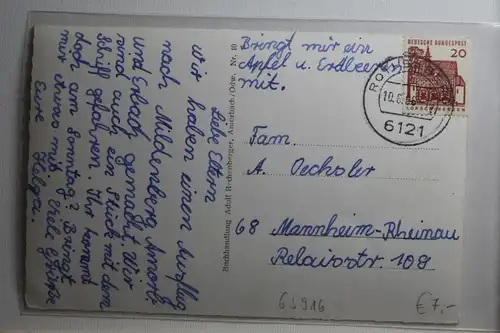 Bringt mir ein
Apfel u. Erdbeeren
mit.
Liebe Eltern
Wir haben einen Ausflug
nach Mildenberg, Amorb.
und Erbach gemacht. Wir
sind auch ein Stück mit dem
Schiff gefahren. Ihr kommt
doch am Sonntag? Bringt
mir etwas mit. Viele Grüße
Eure
Helga.
Buchhandlung Adolf Rechenberger, Amorbach/Odw. Nr. 10
DEUTSCHE BUNDESPOST
20
6121
Fam.
A. Oechsler
68 Mannheim-Rheinau
Relaisstr. 109
€ 7,-